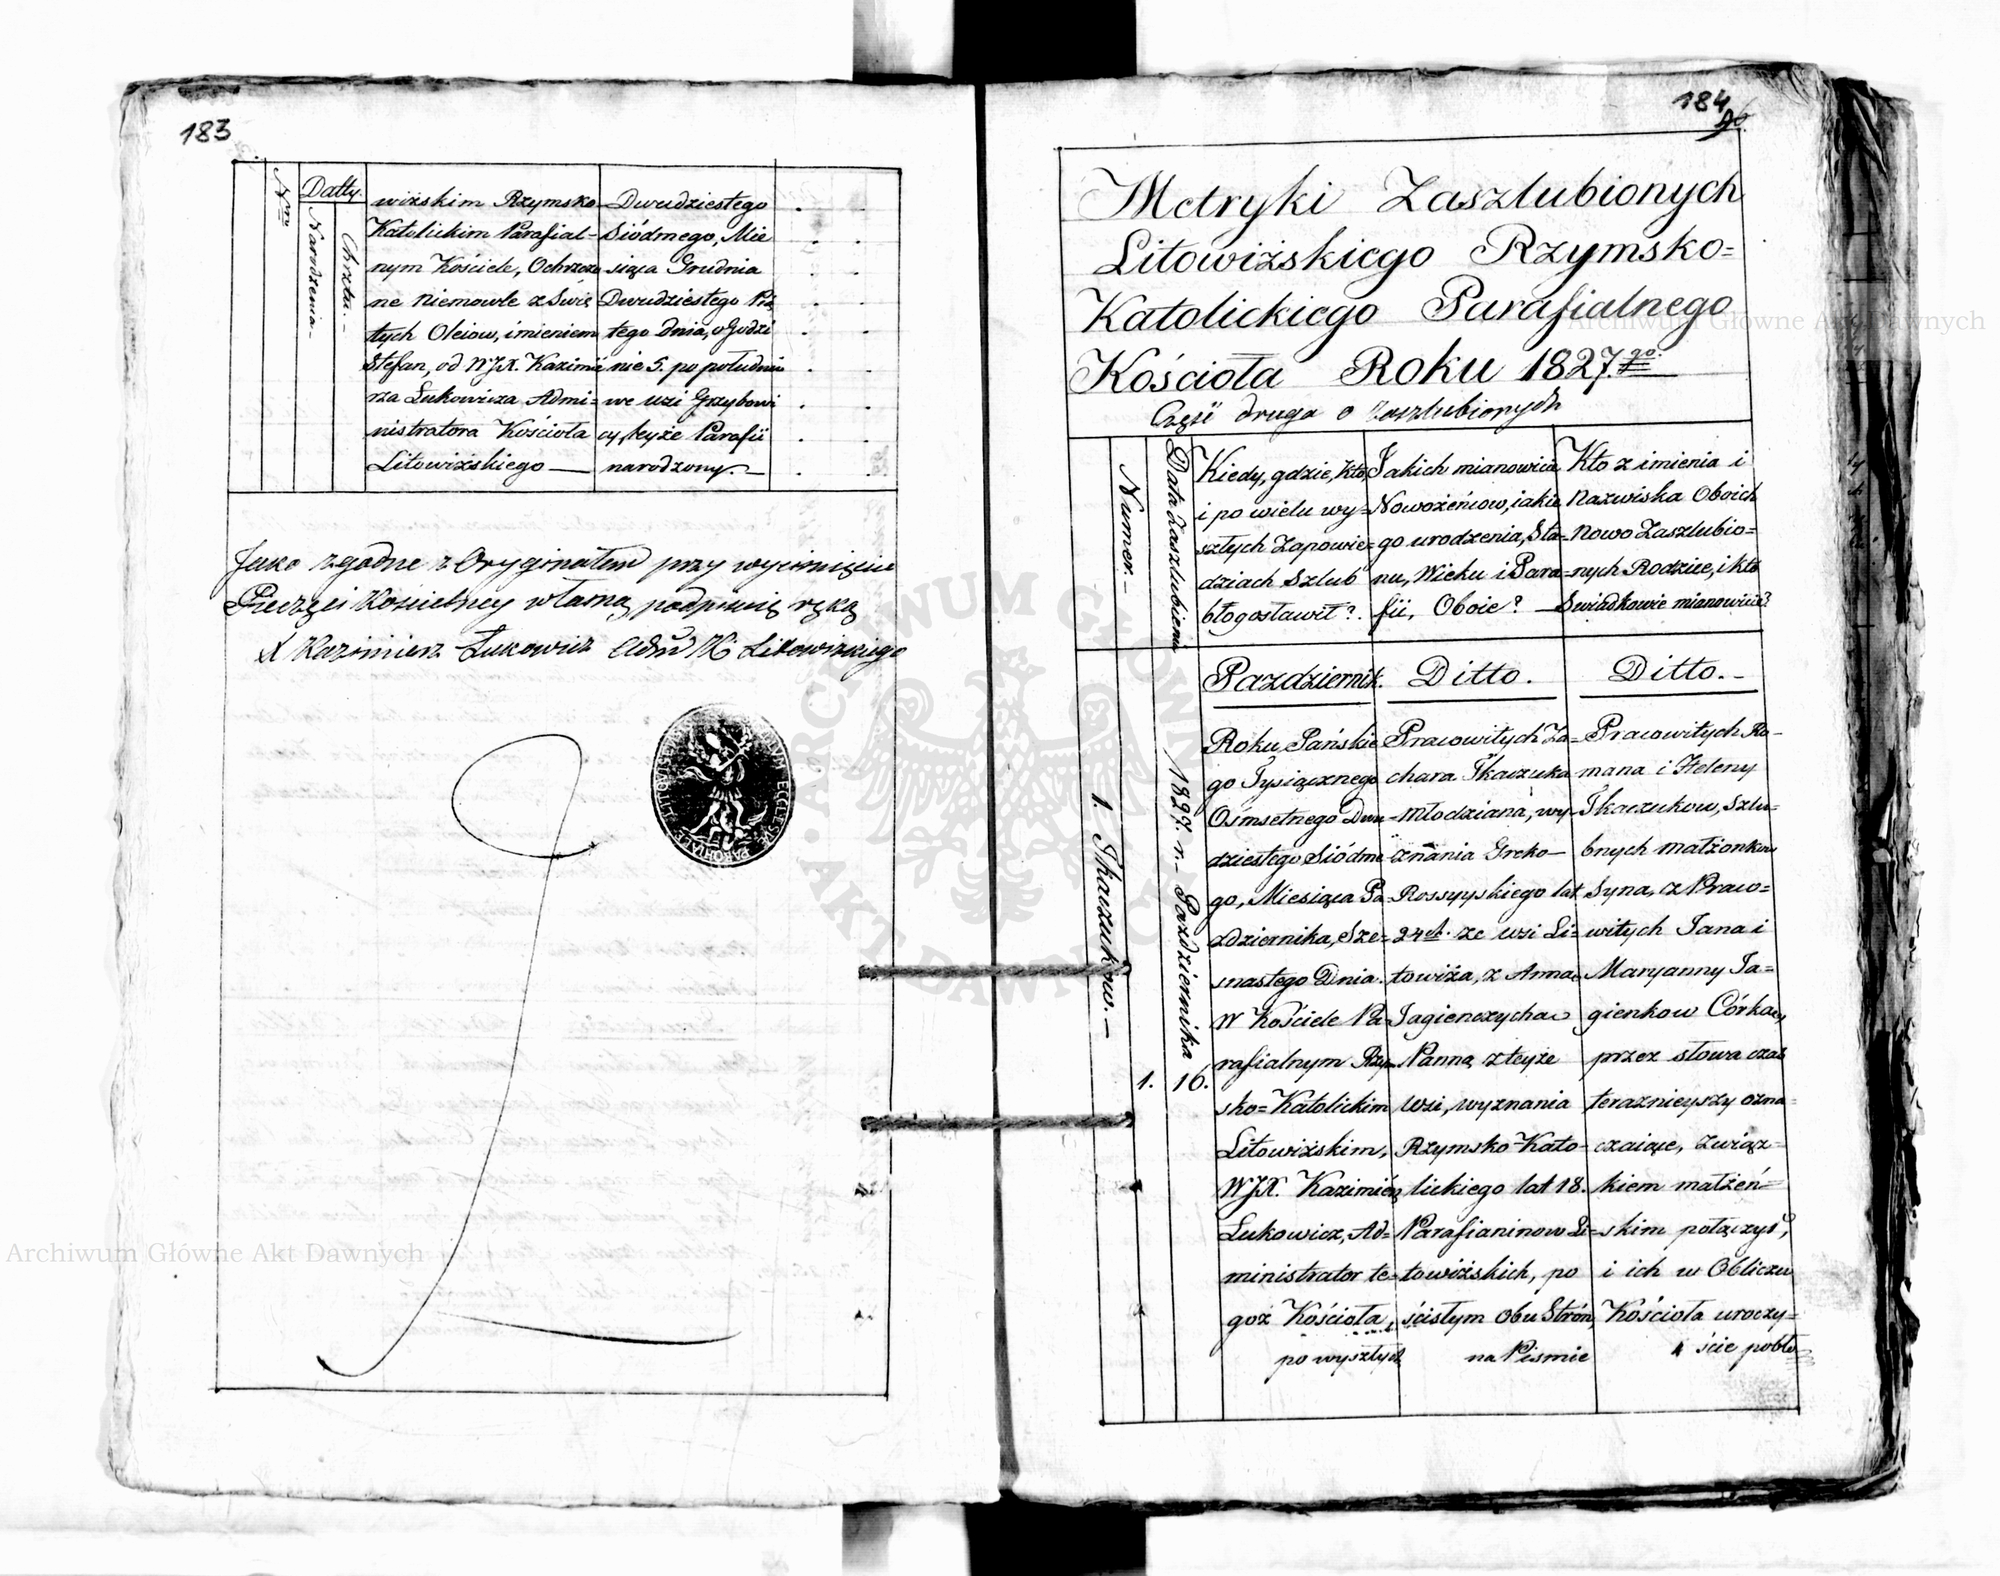 183
Nrm
Datty.
Narodzenia.-
Chrztu.-
wiżskim Rzymsko
Katolickim Parafial-
nym Kościele, Ochrzczo
ne niemowle z Świę
tych Oleiow, imieniem
Stefan, od WJX. Kazimie
rza Łukowicza Admi=
nistratora Kościoła
Litowiżskiego
Dwudziestego
Siódmego, Mie
siąca Grudnia
Dwudziestego Pią
tego dnia, o Godzi
nie 5. po południu
we wsi Grzybowi
cy, teyże Parafii
narodzony.-
Jako zgodne z Oryginałem przy wyciśnięciu
Pieczęci Kościelney własną podpisuię ręką
X Kazimierz Łukowicz Adm K Litowizskiego
184
Metryki Zaszlubionych
Litowiżskiego Rzymsko=
Katolickiego Parafialnego
Kościoła Roku 1827.go
Częsć druga o Zaszlubionych
Numer.-
Data Zaszlubienia
Kiedy, gdzie, Kto,
i po wielu wy=
szłych Zapowie=
dziach Szlub
błogosławił?.
Jakich mianowicie
Nowożeńcow, iakie
go urodzenia, Sta=
nu, Wieku i Para=
fii, Oboie?
Kto z imienia i
Nazwiska Oboich
Nowo Zaszlubio=
nych Rodzice, i kto
Swiadkowie mianowicie?
Pazdziernik.
Ditto.
Ditto.-
1. Tkaczukow.-
1.
1827. r.- Pażdziernika
16.
Roku Pańskie
go Tysiącznego
Ośmsetnego Dwu=
dziestego Siódme
go, Miesiąca Pa
ździernika, Sze=
snastego Dnia.
W Kościele Pa=
rafialnym Rzym
sko=Katolickim
Litowiżskim,
WJX. Kazimierz
Łukowicz, Ad=
ministrator te=
goż Kościoła,
po wyszłych
Pracowitych Za=
chara Tkaczuka
Młodziana, wy=
znania Greko-
Rossyyskiego lat
24ch. ze wsi Li=
towiża, z Anną
Jagienczychą
Panną z teyże
wsi, wyznania
Rzymsko-Kato=
lickiego lat 18.
Parafianinow Li=
towiżskich, po
ścisłym obu Strón,
na Pismie
Pracowitych Ro-
mana i Heleny
Tkaczukow, Szlu=
bnych małżonkow
Syna, z Praco=
witych Jana i
Maryanny Ja=
gienkow Córką,
przez słowa czas
teraznieyszy ozna=
czaiące, związ=
kiem małżeń=
skim połączył,
i ich w Obliczu
Kościoła uroczy=
ście pobło
Archiwum Główne Akt Dawnych
Archiwum Główne Akt Dawnych
ARCHIWUM GŁÓWNE AKT DAWNYCH